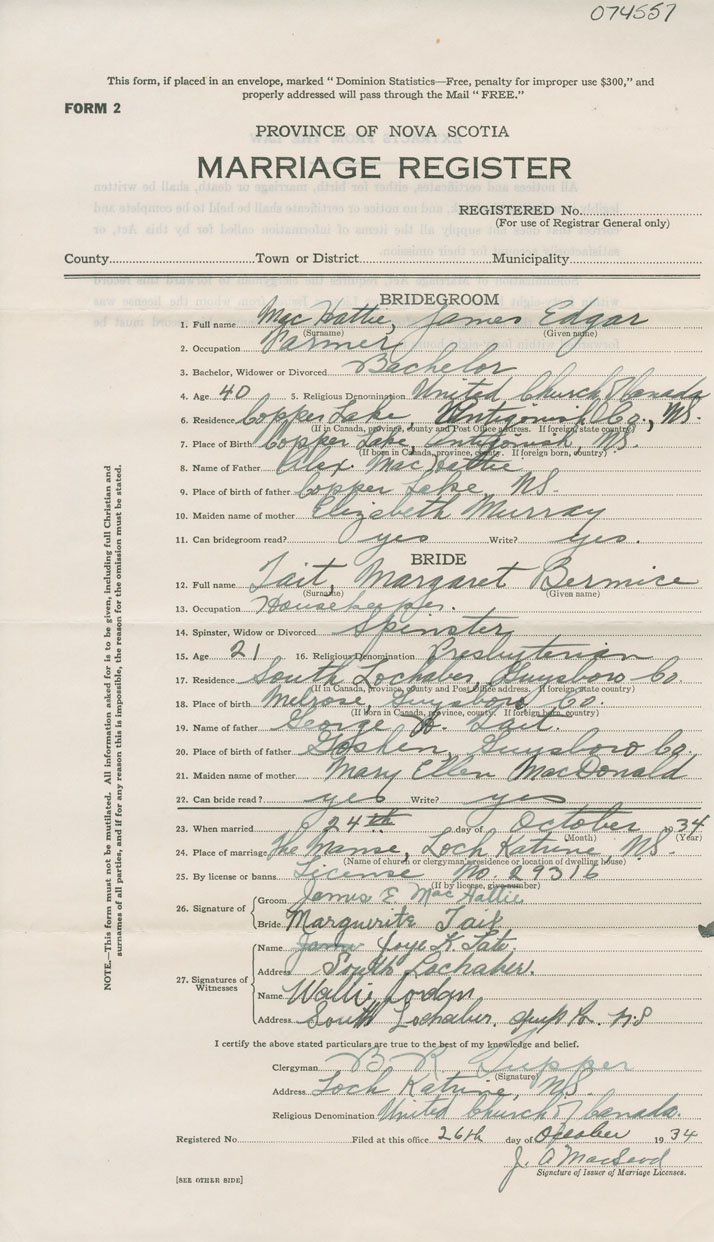 074557
This form, if placed in an envelope, marked "Dominion Statistics—Free, penalty for improper use $300," and
properly addressed will pass through the Mail "FREE."
FORM 2
PROVINCE OF NOVA SCOTIA
MARRIAGE REGISTER
REGISTERED No.
(For use of Registrar General only)
County Town or District Municipality
BRIDEGROOM
1. Full name MacHattie, James Edgar
(Surname) (Given name)
2. Occupation Farmer
3. Bachelor, Widower or Divorced Bachelor
4. Age 40 5. Religious Denomination United Church of Canada
6. Residence Copper Lake, Antigonish Co., NS.
(If in Canada, province, county and Post Office address. If foreign state country)
7. Place of Birth Copper Lake, Antigonish, NS.
(If born in Canada, province, county. If foreign born, country)
8. Name of Father Alex. MacHattie
9. Place of birth of father Copper Lake, NS.
10. Maiden name of mother Elizabeth Murray
11. Can bridegroom read? yes Write? yes.
BRIDE
12. Full name Tait, Margaret Bernice
(Surname) (Given name)
13. Occupation Housekeeper.
14. Spinster, Widow or Divorced Spinster
15. Age 21 16. Religious Denomination Presbyterian
17. Residence South Lochaber, Guysboro Co.
(If in Canada, province, county and Post Office address. If foreign state country)
18. Place of birth Melrose, Guysboro Co.
(If born in Canada, province, county. If foreign born, country)
19. Name of father George Tait.
20. Place of birth of father Goshen, Guysboro Co.
21. Maiden name of mother Mary Ellen MacDonald
22. Can bride read? yes Write? yes
23. When married 24th day of October 1934
(Month) (Year)
24. Place of marriage The Manse, Loch Katrine, NS.
(Name of church or clergyman's residence or location of dwelling house)
25. By license or banns License No. 29316
(If by license, give number)
26. Signature of Groom James E. MacHattie
Bride Marguerite Tait
27. Signatures of Witnesses Name Joye K.
Address South Lochaber.
Name Wallie Jordan
Address South Lochaber, Guys Co. N.S
I certify the above stated particulars are true to the best of my knowledge and belief.
Clergyman B R Tupper
(Signature)
Address Loch Katrine, NS.
Religious Denomination United Church of Canada.
Registered No Filed at this office 26th day of October 1934
J. A MacLeod
Signature of Issuer of Marriage Licenses.
[SEE OTHER SIDE]
NOTE.—This form must not be mutilated. All information asked for is to be given, including full Christian and
surnames of all parties, and if for any reason this is impossible, the reason for the omission must be stated.